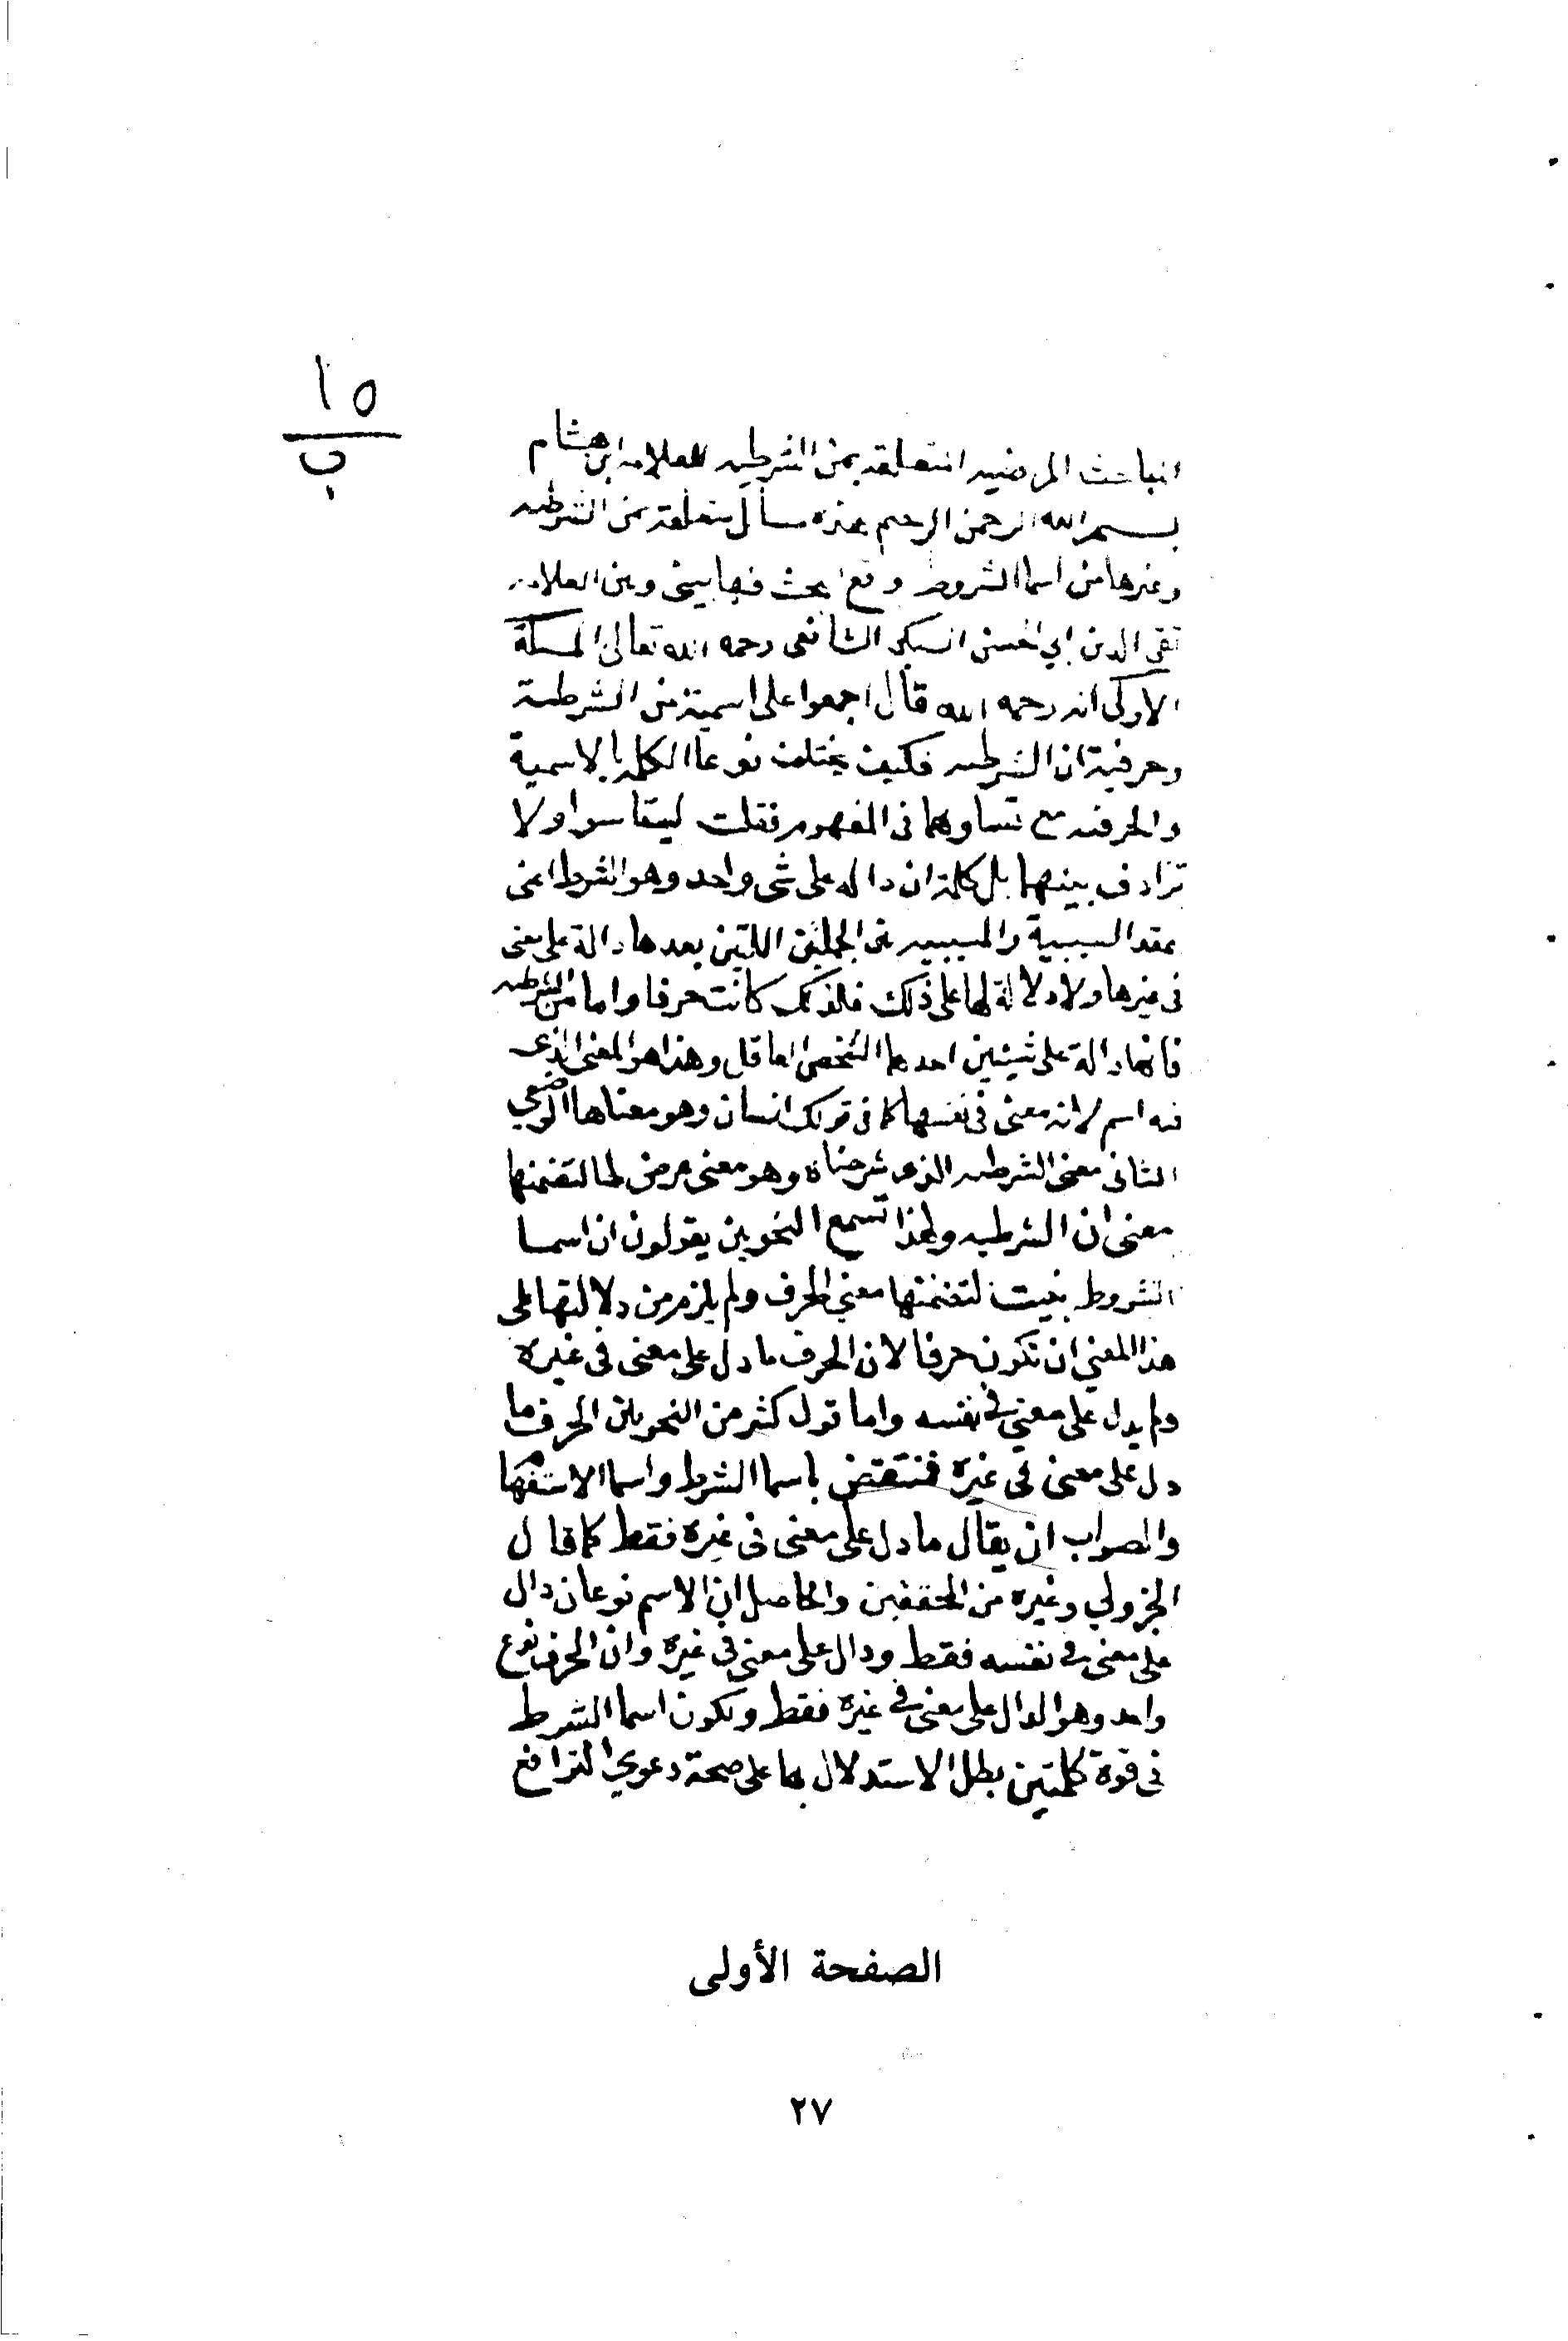 ١٥
ب
المباحث المرضيه المتعلقه بمن الشرطيه للعلامه ابن هشام
بسم الله الرحمن الرحيم هذه مسائل متعلقة بمن الشرطيه
وغيرها من اسما الشروط وقع بحث فيها بيني وبين العلامه
تقي الدين ابي الحسن السبكي الشافعي رحمه الله تعالى المسئلة
الاولى انه رحمه الله قال اجمعوا على اسمية من الشرطية
وحرفية ان الشرطيه فكيف يختلف نوعا الكلمه بالاسمية
والحرفيه مع تساويهما في المفهوم فقلت ليستا سوا ولا
ترادف بينهما بل كلمة ان داله على شي واحد وهو الشرط اعني
عقد السببية والمسببيه بين الجملتين اللتين بعدها دالة على معنى
في غيرها ولا دلالة لها على ذلك فلذلك كانت حرفا واما من الشرطيه
فانها دالة على شيئين احدهما الشخص العاقل وهذا هو المعنى الذي
فيه اسم لانه معنى في نفسها كما في قولك انسان وهو معناها الوضعي
الثاني معنى الشرطيه الذي شرحناه وهو معنى عرض لها لتضمنها
معنى ان الشرطيه ولهذا تسمع النحويين يقولون ان اسما
الشروط بنيت لتضمنها معنى الحرف ولم يلزم من دلالتها على
هذا المعنى ان تكون حرفا لان الحرف ما دل على معنى في غيره
ولم يدل على معنى في نفسه واما قول كثير من النحويين الحرف ما
دل على معنى في غيره فمنتقض باسما الشرط واسما الاستفهام
والصواب ان يقال ما دل على معنى في غيره فقط كما قال
الجزولي وغيره من المحققين والحاصل ان الاسم نوعان دال
على معنى في نفسه فقط ودال على معنى في غيره وان الحرف نوع
واحد وهو الدال على معنى في غيره فقط وتكون اسما الشرط
في قوة كلمتين بطل الاستدلال بها على صحة دعوي الترافع
الصفحة الأولى
٢٧